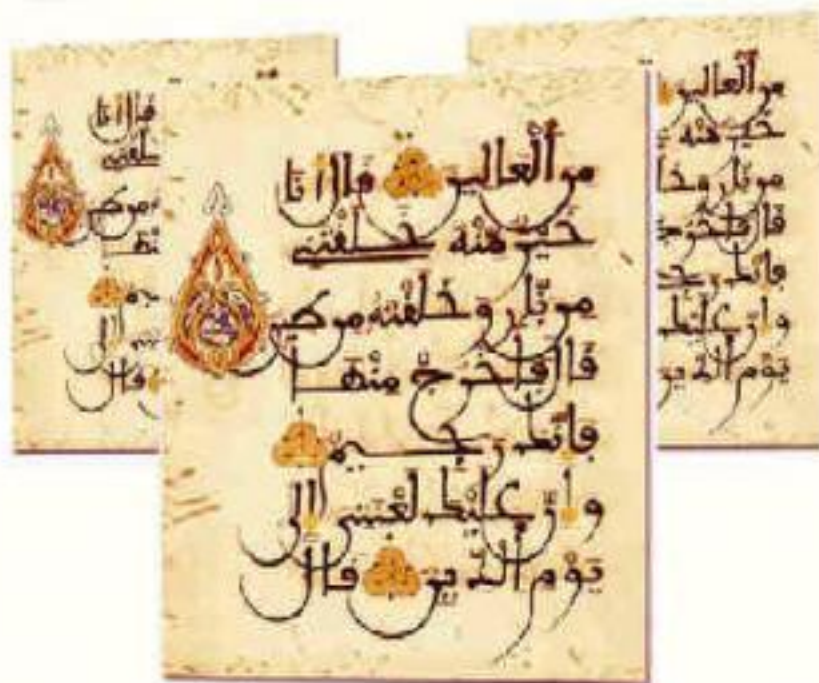 من ألعالين قال أنا
خير منه خلقتني
من نار وخلقته من طين
قال فاخرج منها
فإنك رجيم
وإن عليك لعنتي إلى
يوم ألدين قال